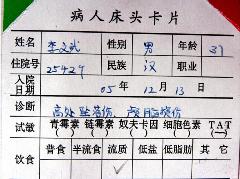 病人床头卡片
姓名 李文武 性别 男 年龄 37
住院号 25427 民族 汉 职业
入院日期 05年12月13日
诊断 高处坠落伤 颅脑损伤
试敏 青霉素 链霉素 奴夫卡因 细胞色素 TAT
( ) ( ) ( ) ( ) ( )
饮食 普食 半流食 流质 低盐 低脂肪 其它